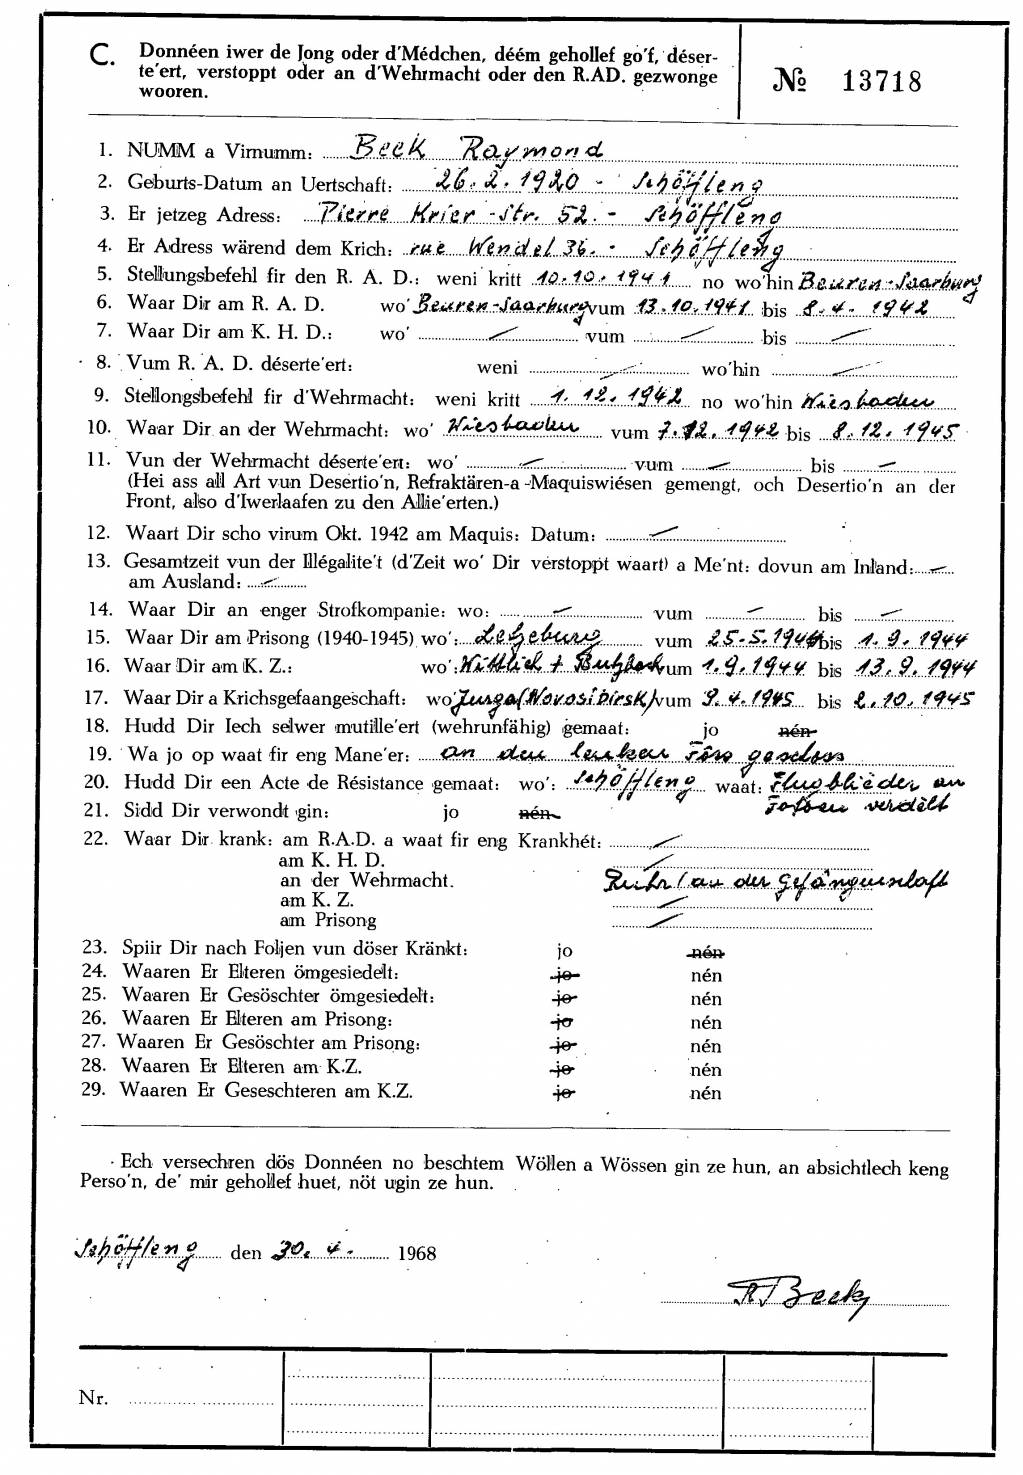 C. Donnéen iwer de Jong oder d'Médchen, déém gehollef go'f, déser-
te'ert, verstoppt oder an d'Wehrmacht oder den R.AD. gezwonge
wooren.
№ 13718
1. NUMM a Virnumm: Beck Raymond
2. Geburts-Datum an Uertschaft: 26.2.1920 - Schöffleng
3. Er jetzeg Adress: Pierre Krier-Str. 52. - Schöffleng
4. Er Adress wärend dem Krich: rue Wendel 36. - Schöffleng
5. Stellungsbefehl fir den R. A. D.: weni kritt 10.10.1941 no wo'hin Beuren-Saarburg
6. Waar Dir am R. A. D. wo' Beuren-Saarburg vum 13.10.1941 bis 8.4.1942
7. Waar Dir am K. H. D.: wo' — vum — bis —
8. Vum R. A. D. déserte'ert: weni — wo'hin —
9. Stellongsbefehl fir d'Wehrmacht: weni kritt 1.12.1942 no wo'hin Wiesbaden
10. Waar Dir an der Wehrmacht: wo' Wiesbaden vum 7.12.1942 bis 8.12.1945
11. Vun der Wehrmacht déserte'ert: wo' — vum — bis —
(Hei ass all Art vun Desertio'n, Refraktären-a-Maquiswiésen gemengt, och Desertio'n an der
Front, also d'Iwerlaafen zu den Allie'erten.)
12. Waart Dir scho virum Okt. 1942 am Maquis: Datum: —
13. Gesamtzeit vun der Illégalite't (d'Zeit wo' Dir verstoppt waart) a Me'nt: dovun am Inland: —
am Ausland: —
14. Waar Dir an enger Strofkompanie: wo: — vum — bis —
15. Waar Dir am Prisong (1940-1945) wo': Letzeburg vum 25.5.1944 bis 1.9.1944
16. Waar Dir am K. Z.: wo': Wittlich + Butzbach vum 1.9.1944 bis 13.9.1944
17. Waar Dir a Krichsgefaangeschaft: wo' Jurga (Novosibirsk) vum 9.4.1945 bis 2.10.1945
18. Hudd Dir Iech selwer mutille'ert (wehrunfähig) gemaat: jo nén
19. Wa jo op waat fir eng Mane'er: an den lenken Foss geschoss
20. Hudd Dir een Acte de Résistance gemaat: wo': Schöffleng waat: Flugblieder an
21. Sidd Dir verwondt gin: jo nén Fotoen verdélt
22. Waar Dir krank: am R.A.D. a waat fir eng Krankhét: —
am K. H. D. —
an der Wehrmacht. Ruhr (an der Gefängenschaft
am K. Z. —
am Prisong —
23. Spiir Dir nach Foljen vun döser Kränkt: jo nén
24. Waaren Er Elteren ömgesiedelt: jo nén
25. Waaren Er Gesöschter ömgesiedelt: jo nén
26. Waaren Er Elteren am Prisong: jo nén
27. Waaren Er Gesöschter am Prisong: jo nén
28. Waaren Er Elteren am K.Z. jo nén
29. Waaren Er Geseschteren am K.Z. jo nén
Ech versechren dös Donnéen no beschtem Wöllen a Wössen gin ze hun, an absichtlech keng
Perso'n, de' mir gehollef huet, nöt ugin ze hun.
Schöffleng den 30. 4. 1968
R Beck
Nr.